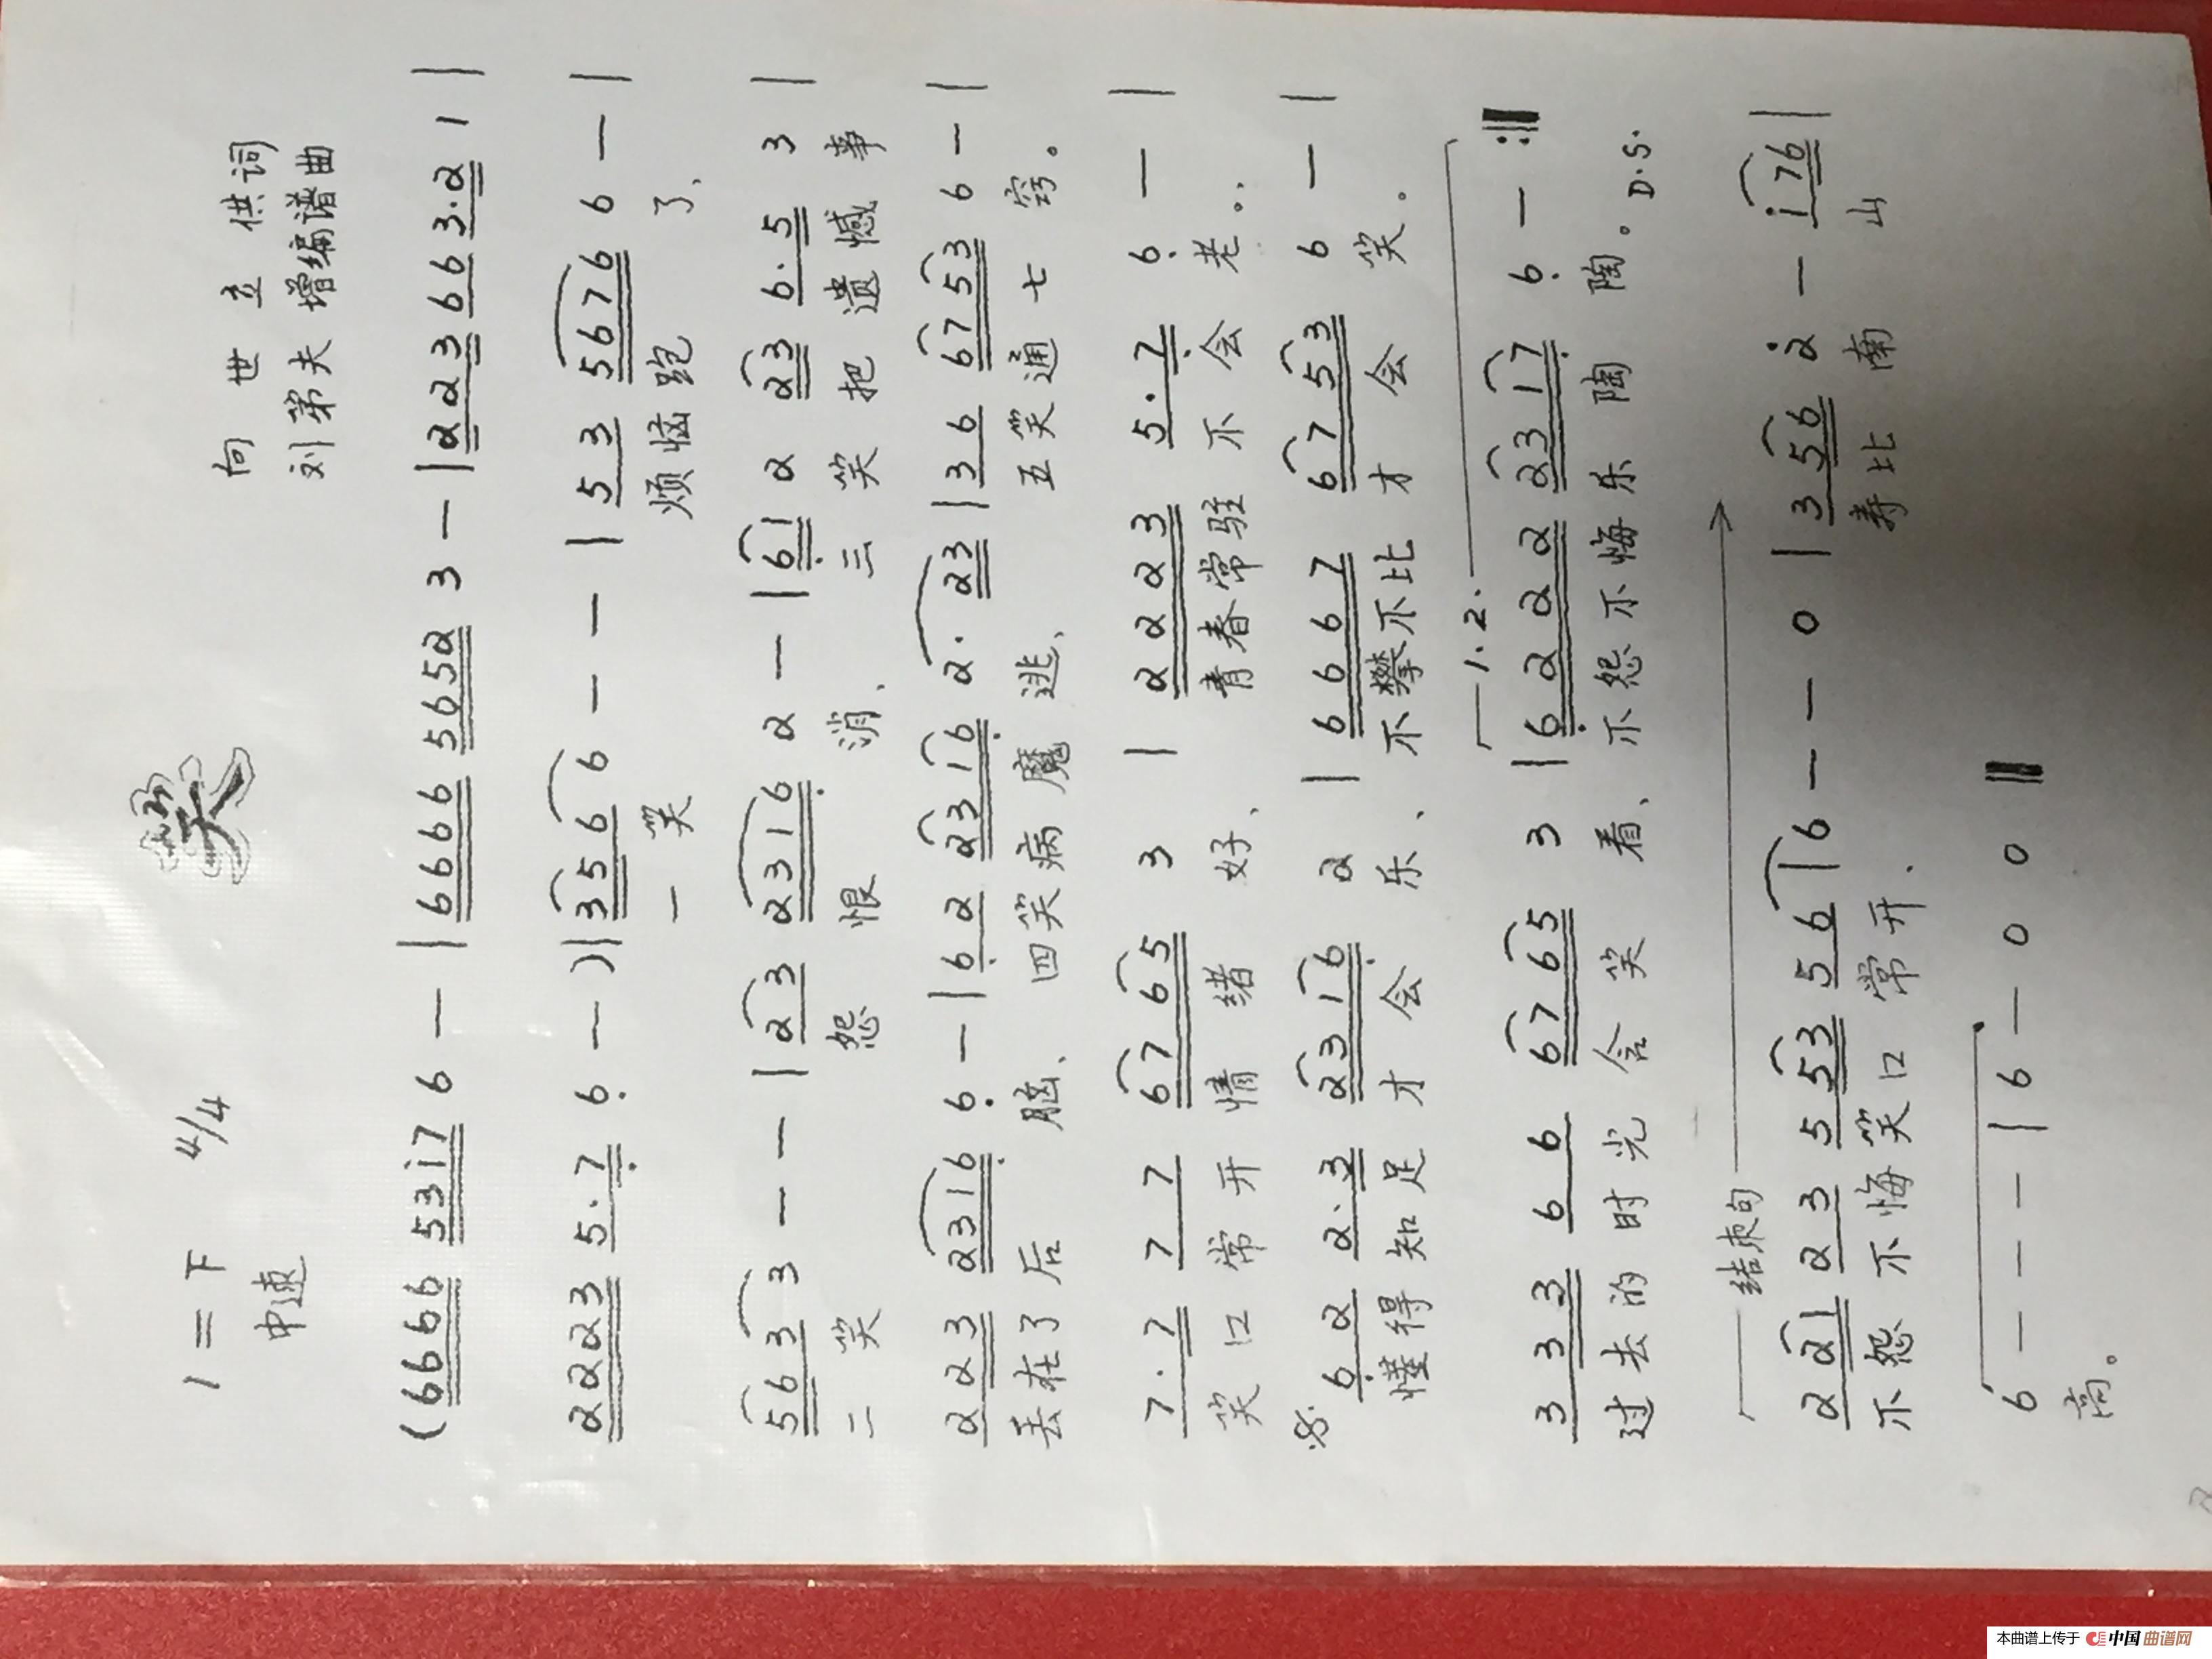 笑
1=下 4/4
向世立 供词
中速
刘第夫 增编谱曲
(6666 5317 6 — | 6666 5652 3 — | 2233 66 3·2 1 |
2223 5·7 6 —) | 3566 — — — | 53 5676 6 — |
一笑 烦恼跑 了、
563 3 — — | 23 2316 2 — | 61 2 23 6·5 3 |
二笑 怨恨 消、 三笑 把遗憾事
223 2316 6 — | 62 2316 2·23 | 36 6753 6 — |
丢在了后 脑、 四笑病魔 逃、 五笑通七 窍。
7·7 77 6765 3 | 2223 5·7 6 — |
笑口常开情绪 好、 青春常驻不会 老。
62 2·3 2316 2 | 6667 6753 6 — |
懂得知足才会 乐、 不攀不比才会 笑。
1.2.
333 66 6765 3 | 6222 2317 6 — :‖
过去的时光含笑 看、 不怨不悔乐陶 陶。 D.S.
结束句
221 23 553 56 | 6 — — 0 | 356 2 — 176 |
不怨不悔笑口常开、 寿比南 山
6 — — — | 6 — 0 0 ‖
高。
本曲谱上传于 中国曲谱网